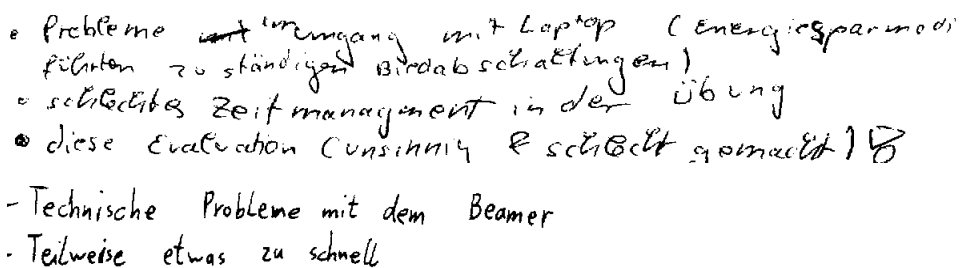 • Probleme im umgang mit Laptop (Energiesparmodi
führten zu ständigen Bildabschaltungen)
• schlechtes Zeitmanagment in der Übung
• diese Evaluation (unsinnig & schlecht gemacht)
- Technische Probleme mit dem Beamer
- Teilweise etwas zu schnell